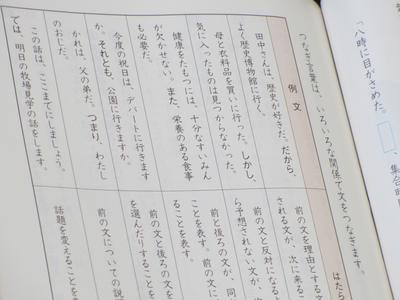 「八時に目がさめた。
集合時
つなぎ言葉は、いろいろな関係で文をつなぎます。
はた
例文
田中さんは、歴史が好きだ。だから、
よく歴史博物館に行く。
母と衣料品を買いに行った。しかし、
気に入ったものは見つからなかった。
健康をたもつには、十分なすいみん
が欠かせない。また、栄養のある食事
も必要だ。
今度の祝日は、デパートに行きます
か。それとも、公園に行きますか。
かれは、父の弟だ。つまり、わたし
のおじだ。
この話は、ここまでにしましょう。
では、明日の牧場見学の話をします。
前の文を理由とする
される文が、次に来る
前の文と反対になる
ら予想されない文が、
前と後ろの文が、同
ことを表す。前の文に
ることを表す。
前の文と後ろの文を
を選んだりすること
前の文についての説
話題を変えることを